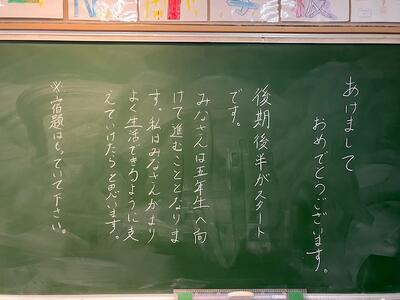 あけまして
おめでとうございます。
後期後半がスタート
です。
みなさんは五年生へ向
けて進むこととなりま
す。私はみなさんがより
よく生活できるように支
えていけたらと思います。
※宿題はもっていて下さい。